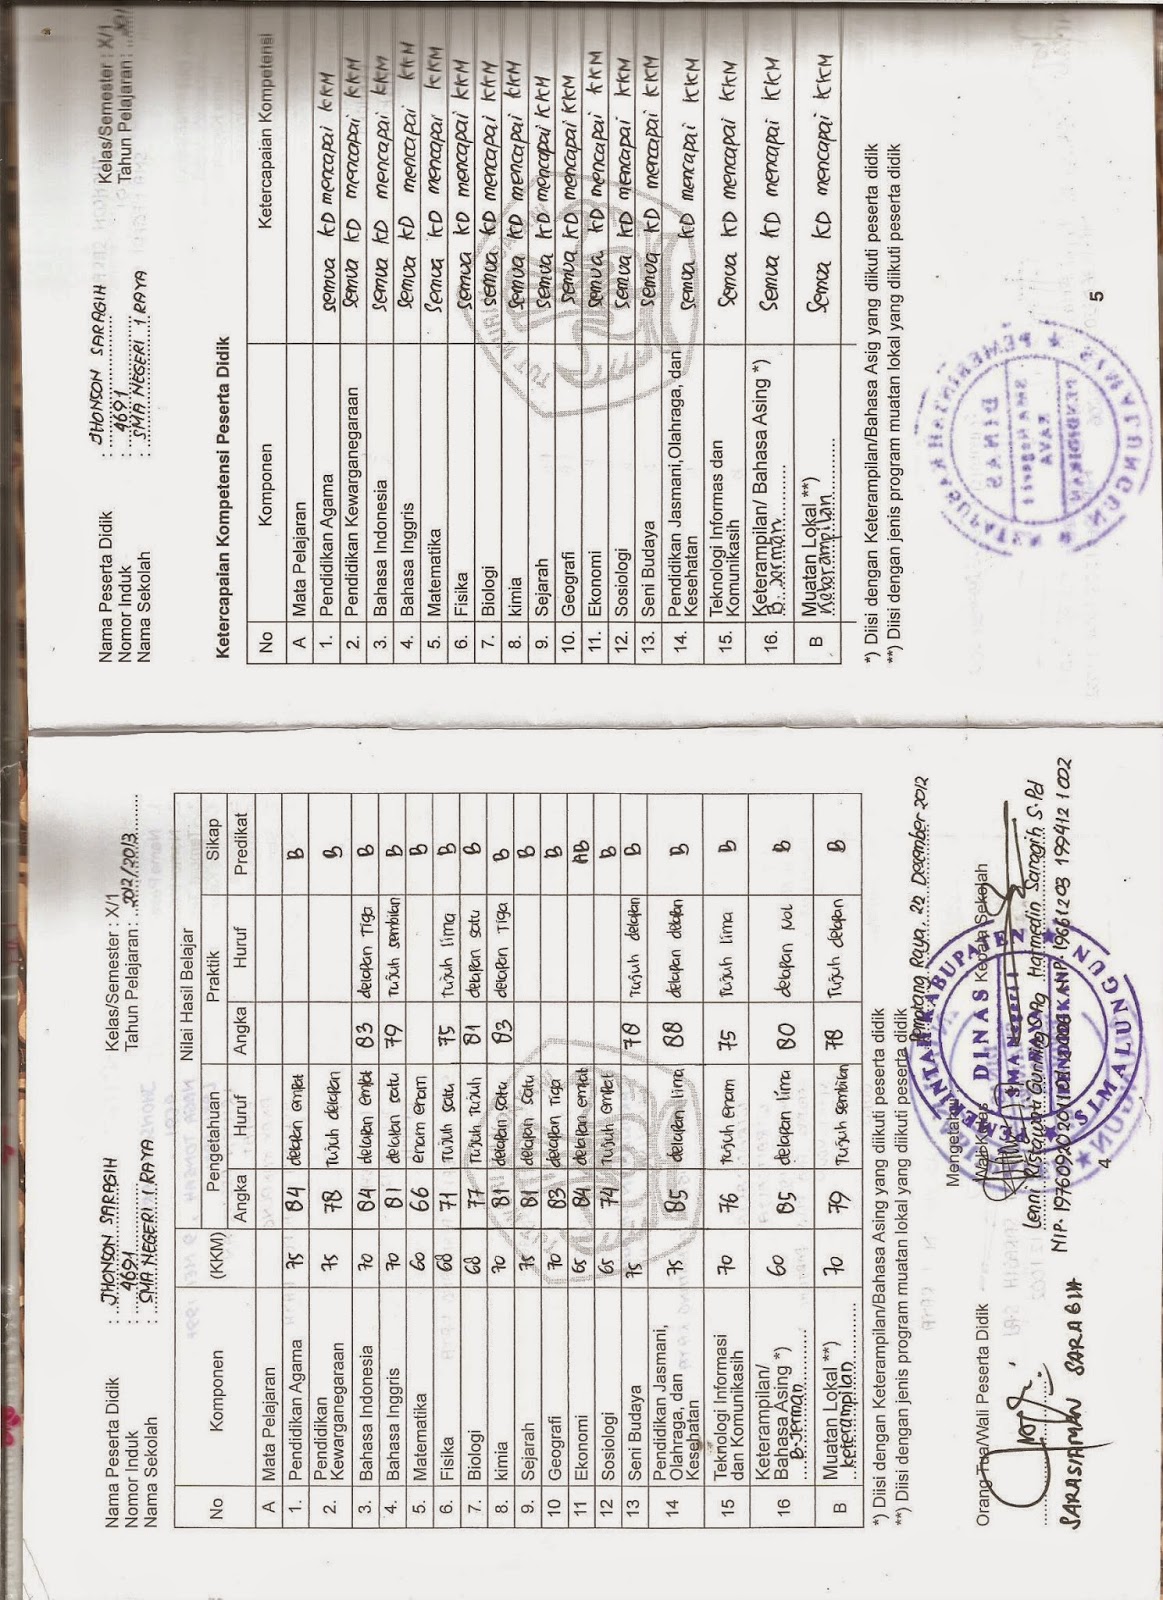 Nama Peserta Didik : JHONSON SARAGIH Kelas/Semester : X/1
Nomor Induk : 4691 Tahun Pelajaran : 2012/2013
Nama Sekolah : SMA NEGERI 1 RAYA
No Komponen (KKM) Nilai Hasil Belajar
Pengetahuan Praktik Sikap
Angka Huruf Angka Huruf Predikat
A Mata Pelajaran
1. Pendidikan Agama 75 84 delapan empat B
2. Pendidikan Kewarganegaraan 75 78 Tujuh delapan B
3. Bahasa Indonesia 70 84 delapan empat 83 delapan Tiga B
4. Bahasa Inggris 70 81 delapan satu 79 Tujuh sembilan B
5. Matematika 60 66 enam enam B
6. Fisika 68 71 Tujuh satu 75 Tujuh lima B
7. Biologi 68 77 Tujuh Tujuh 81 delapan satu B
8. kimia 70 81 delapan satu 83 delapan Tiga B
9. Sejarah 75 81 delapan satu B
10 Geografi 70 83 delapan Tiga B
11 Ekonomi 65 84 delapan empat AB
12 Sosiologi 65 74 Tujuh empat B
13 Seni Budaya 75 78 Tujuh delapan B
14 Pendidikan Jasmani, Olahraga, dan Kesehatan 75 85 delapan lima 88 delapan delapan B
15 Teknologi Informasi dan Komunikasih 70 76 Tujuh enam 75 Tujuh lima B
16 Keterampilan/ Bahasa Asing *) B. Jerman 60 85 delapan lima 80 delapan Nol B
B Muatan Lokal **) keterampilan 70 79 Tujuh sembilan 78 Tujuh delapan B
*) Diisi dengan Keterampilan/Bahasa Asing yang diikuti peserta didik
**) Diisi dengan jenis program muatan lokal yang diikuti peserta didik
Pematang Raya, 22 Desember 2012
Mengetahui
Orang Tua/Wali Peserta Didik Wali Kelas Kepala Sekolah
SARASIAMAN SARAGIH
Harmedin Saragih S.Pd
NIP. 19661203 199412 1 002
PEMERINTAH KABUPATEN SIMALUNGUN
DINAS PENDIDIKAN
SMA Negeri 1
RAYA
4
Nama Peserta Didik : JHONSON SARAGIH Kelas/Semester : X/1
Nomor Induk : 4691 Tahun Pelajaran :
Nama Sekolah : SMA NEGERI 1 RAYA
Ketercapaian Kompetensi Peserta Didik
No Komponen Ketercapaian Kompetensi
A Mata Pelajaran
1. Pendidikan Agama semua KD mencapai KKM
2. Pendidikan Kewarganegaraan semua KD mencapai KKM
3. Bahasa Indonesia semua KD mencapai KKM
4. Bahasa Inggris semua KD mencapai KKM
5. Matematika semua KD mencapai KKM
6. Fisika semua KD mencapai KKM
7. Biologi semua KD mencapai KKM
8. kimia semua KD mencapai KKM
9. Sejarah semua KD mencapai KKM
10. Geografi semua KD mencapai KKM
11. Ekonomi semua KD mencapai KKM
12. Sosiologi semua KD mencapai KKM
13. Seni Budaya semua KD mencapai KKM
14. Pendidikan Jasmani,Olahraga, dan Kesehatan semua KD mencapai KKM
15. Teknologi Informas dan Komunikasih semua KD mencapai KKM
16. Keterampilan/ Bahasa Asing *) B. Jerman semua KD mencapai KKM
B Muatan Lokal **) Keterampilan Semua KD mencapai KKM
*) Diisi dengan Keterampilan/Bahasa Asig yang diikuti peserta didik
**) Diisi dengan jenis program muatan lokal yang diikuti peserta didik
5